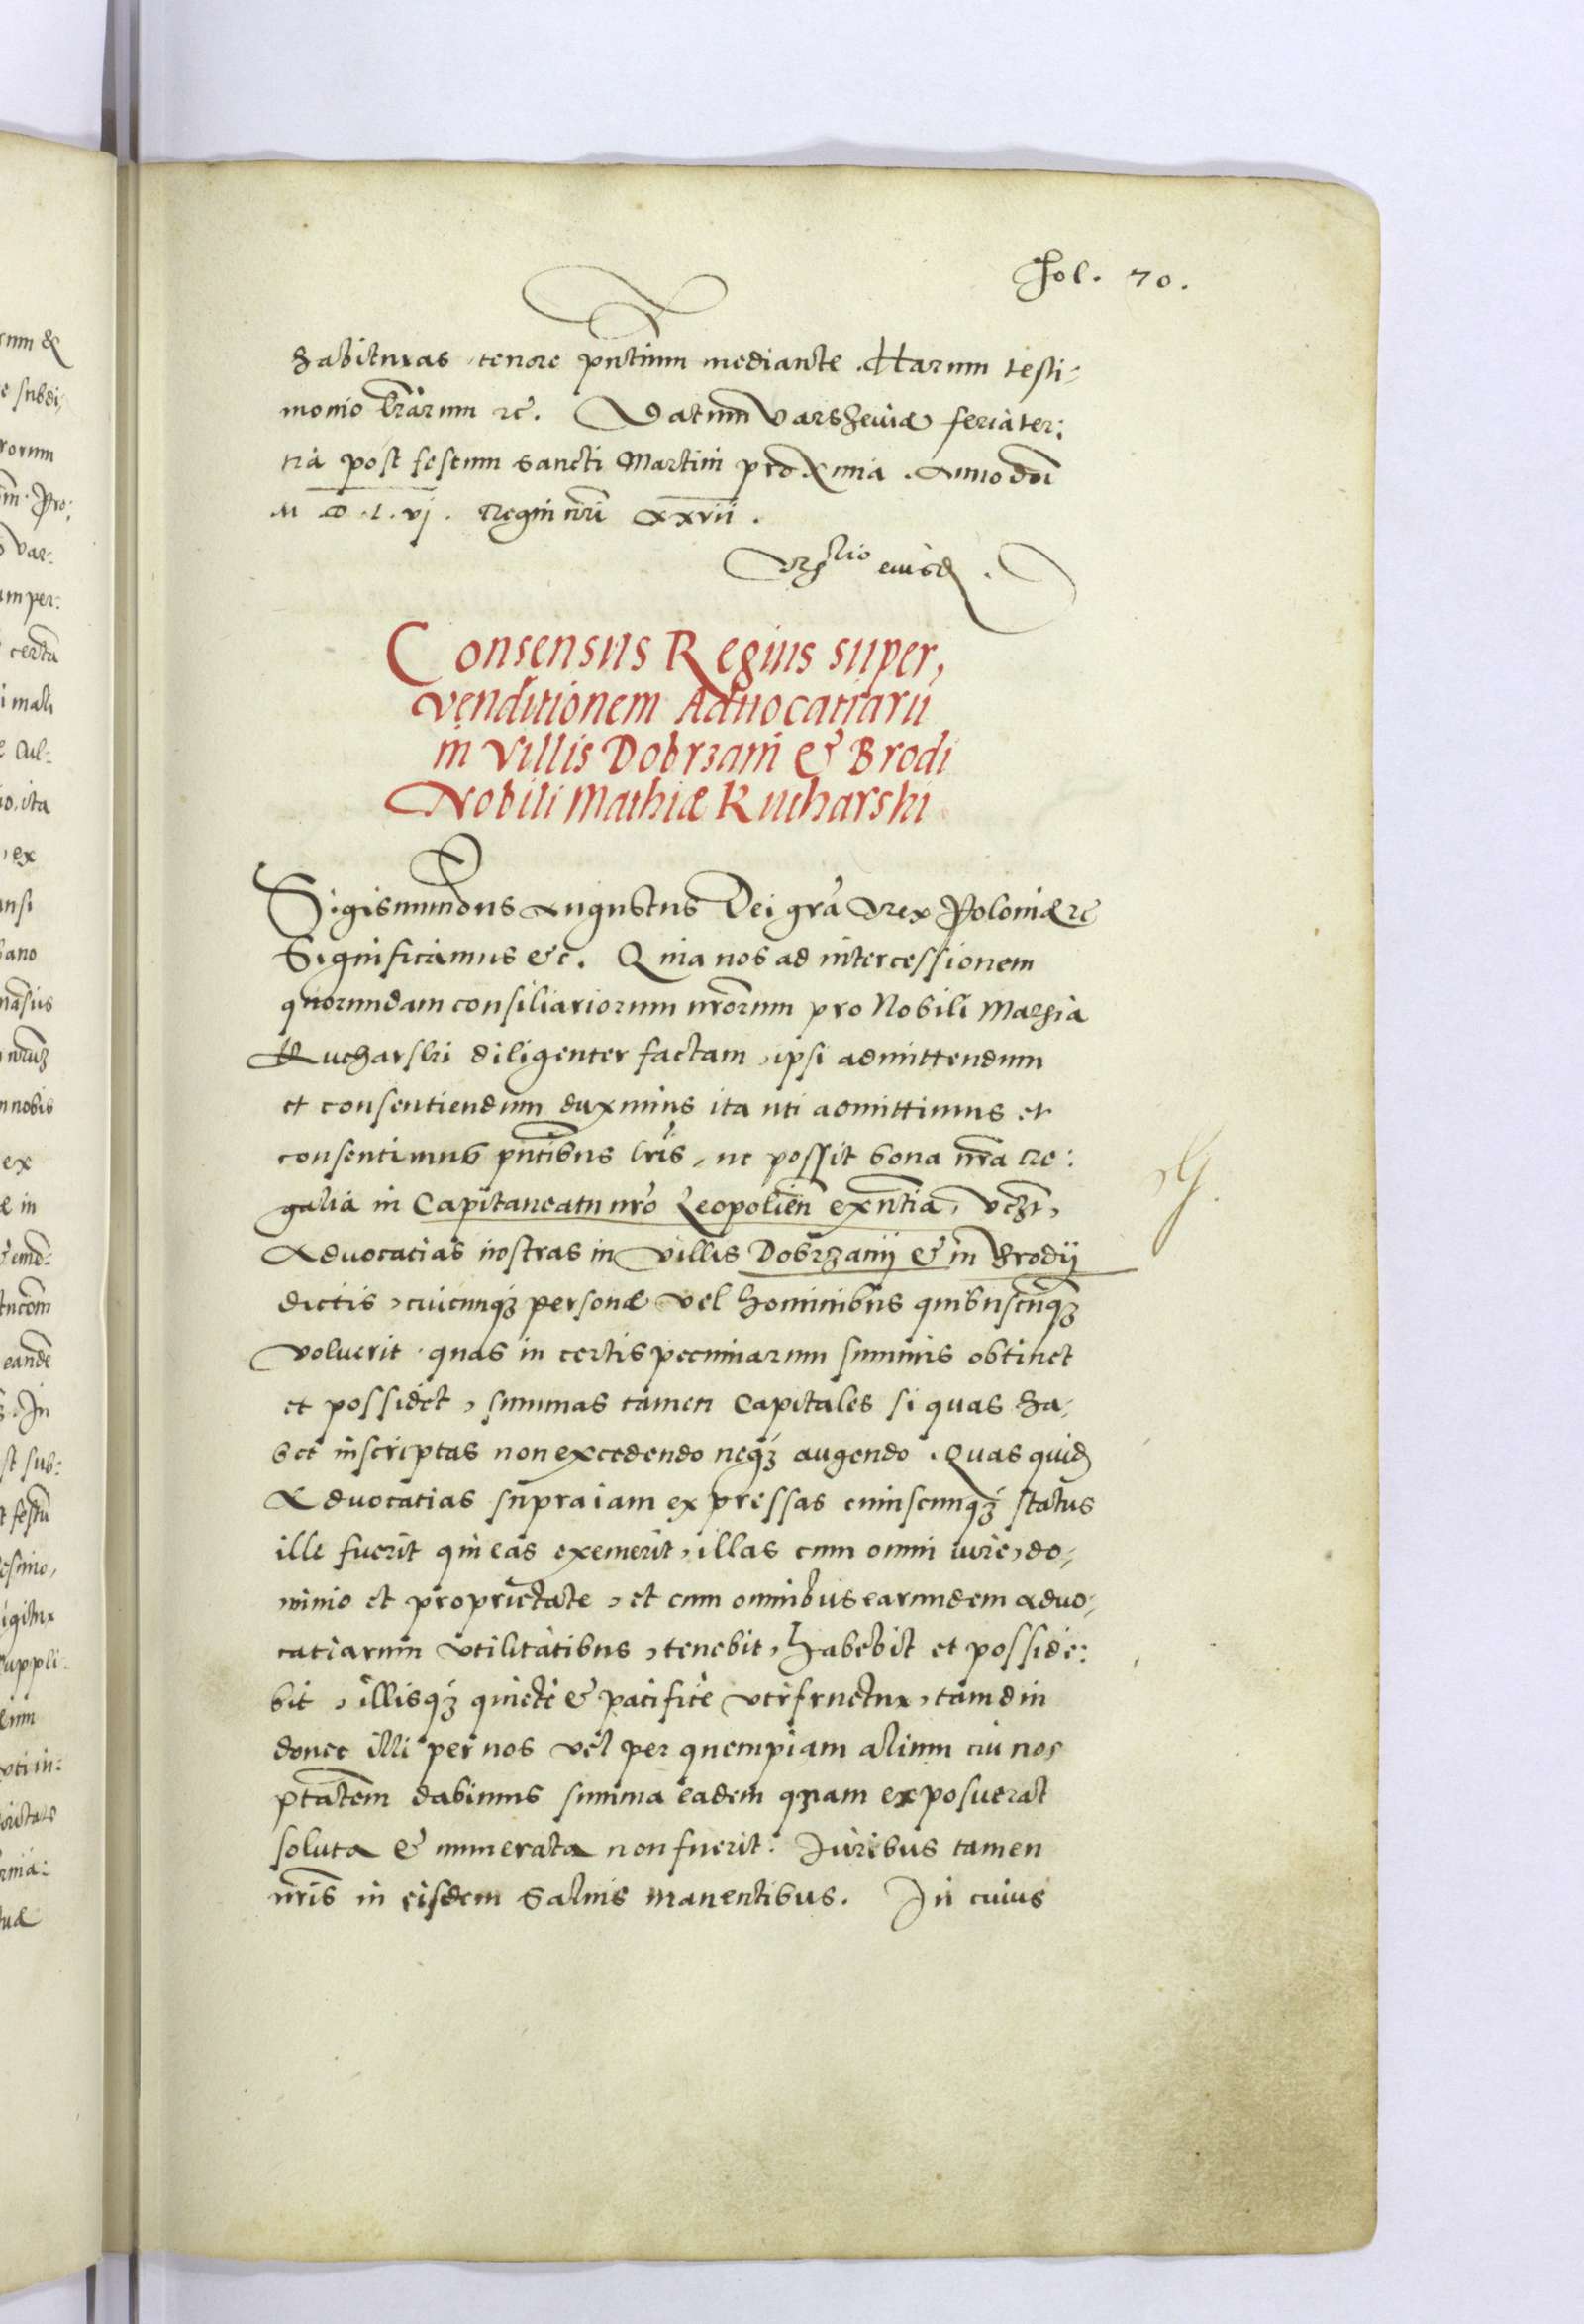 Fol. 70.
habituras, tenore pntium mediante. Harum testi:
monio lrarum &c. Datum Varsheuiæ feria ter:
tia post festum sancti Martini proxima. Anno dni
M D L vj. Regni nri xxvii.
Rlio eiusd.
Consensus Regius super,
venditionem Aduocatiarū
in villis Dobrzani & Brodi
Nobili Mathiæ Kucharski
Sigismundus Augustus Dei gra Rex Poloniæ &c
Significamus &c. Quia nos ad intercessionem
quorundam consiliariorum nrorum pro Nobili Mathia
Kucharski diligenter factam, ipsi admittendum
et consentiendum duximus ita uti admittimus et
consentimus pntibus lris, ut possit bona nra re:
galia in Capitaneatu nro Leopolien exntia, vczt,
Aduocatias nostras in villis Dobrzanij & in Brodij
dictis, cuicunqz personæ vel hominibus quibuscunqz
voluerit, quas in certis pecuniarum summis obtinet
et possidet, summas tamen Capitales si quas ha:
bet inscriptas non excedendo neqz augendo. Quas quid
Aduocatias supra iam expressas cuiuscunqz status
ille fuerit qui eas exemerit, illas cum omni iure, do:
minio et proprietate, et cum omnibus earundem aduo:
catiarum vtilitatibus, tenebit, habebit et posside:
bit, illisqz quiete & pacifice vtifruetur, tamdiu
donec illi per nos vel per quempiam alium cui nos
ptatem dabimus summa eadem quam exposuerat
soluta & numerata non fuerit. Juribus tamen
nris in eisdem saluis manentibus. In cuius